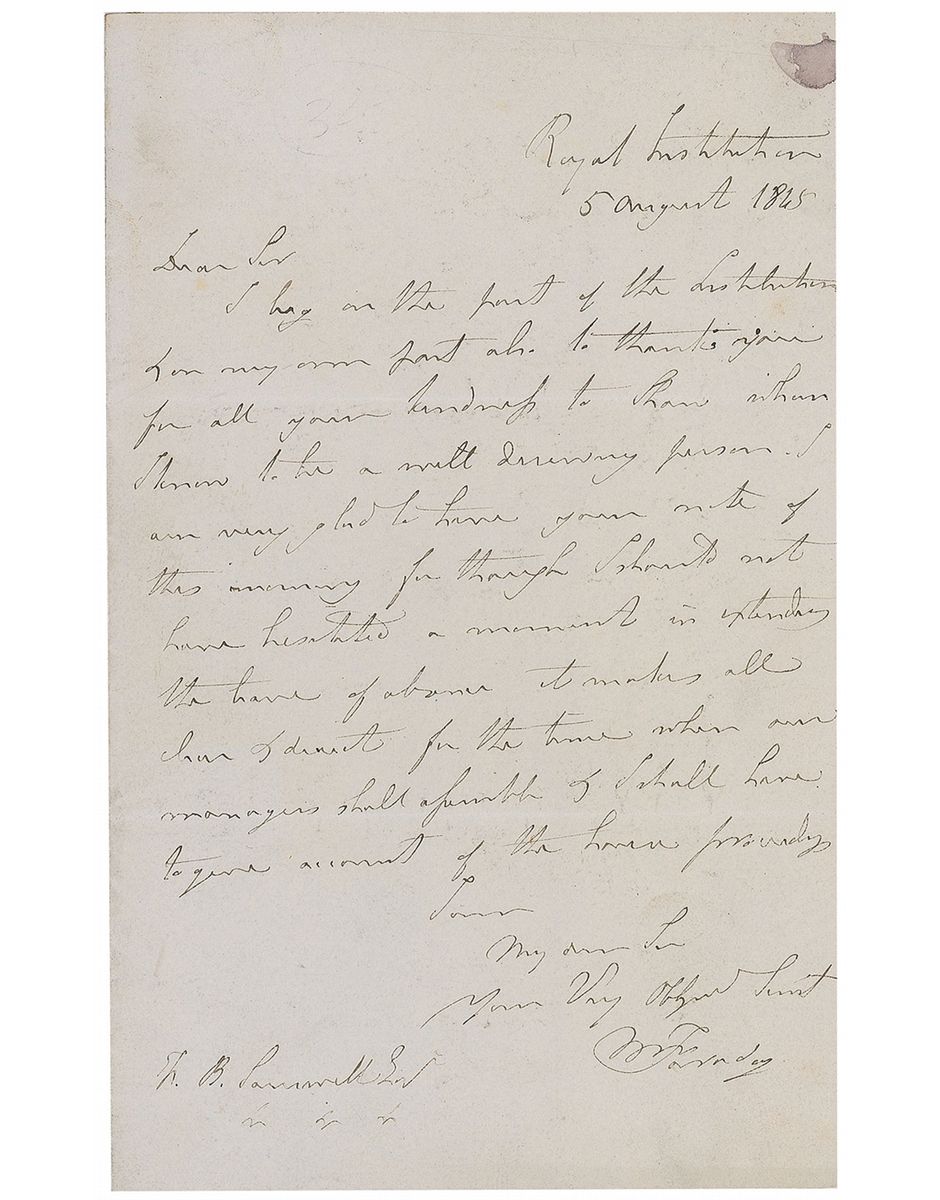 Royal Institution
5 August 1845
Dear Sir
I beg on the part of the Institution
& on my own part also to thank you
for all your kindness to Shaw whom
I know to be a well deserving person. I
am very glad to have your note of
this morning for though I should not
have hesitated a moment in extending
the leave of absence it makes all
clear & direct for the time when our
managers shall assemble & I shall have
to give account of the house proceedings
I am
My dear Sir
Your Very Obliged Servt
M Faraday
B. Esqr
&c &c &c